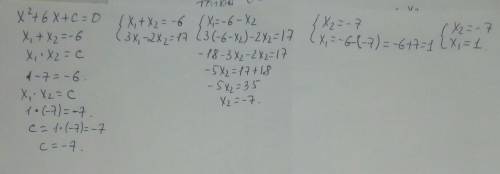 x²+6x+c=0
x₁+x₂=-6
x₁·x₂=c
1-7=-6.
x₁·x₂=c
1·(-7)=-7.
c=1·(-7)=-7
c=-7.
{x₁+x₂=-6
3x₁-2x₂=17
{x₁=-6-x₂
3(-6-x₂)-2x₂=17
-18-3x₂-2x₂=17
-5x₂=17+18
-5x₂=35
x₂=-7.
{x₂=-7
x₁=-6-(-7)=-6+7=1
{x₂=-7
x₁=1